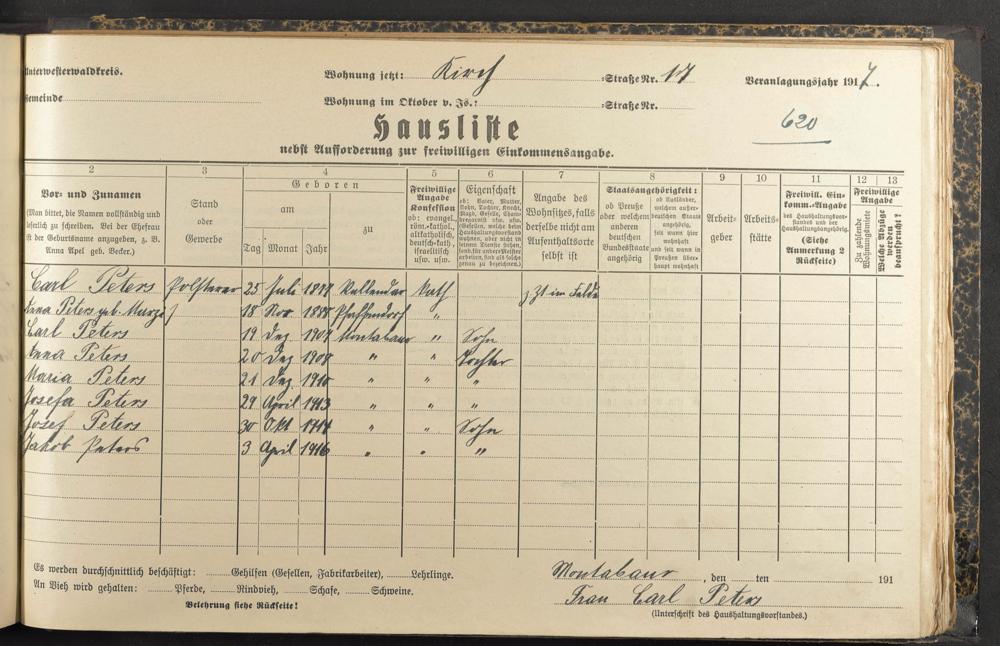 Unterwesterwaldkreis.
Wohnung jetzt: Kirch =Straße Nr. 17
Veranlagungsjahr 1917.
Gemeinde
Wohnung im Oktober v. Js.: =Straße Nr.
620
Hausliste
nebst Aufforderung zur freiwilligen Einkommensangabe.
2 3 4 5 6 7 8 9 10 11 12 13
Vor- und Zunamen
(Man bittet, die Namen vollständig und
leserlich zu schreiben. Bei der Ehefrau
ist der Geburtsname anzugeben, z. B.
Anna Apel geb. Becker.)
Stand
oder
Gewerbe
Geboren
am
Tag Monat Jahr
zu
Freiwillige
Angabe
Konfession
ob: evangel.,
röm.-kathol.,
altkatholisch,
deutsch-kath.,
israelitisch
usw. usw.
Eigenschaft
ob: Vater, Mutter,
Sohn, Tochter, Knecht,
Magd, Geselle,
Angabe des
Wohnsitzes, falls
derselbe nicht am
Aufenthaltsorte
selbst ist
Staatsangehörigkeit:
ob Preuße
oder welchem
anderen
deutschen
Bundesstaate
angehörig
ob Ausländer,
welchem außer-
deutschen Staate
angehörig,
seit wann hier
wohnhaft
und seit wann in
Preußen über-
haupt wohnhaft
Arbeit-
geber
Arbeits-
stätte
Freiwill. Ein-
komm.-Angabe
des Haushaltungsvor-
standes und der
Haushaltungsangehörig.
(Siehe
Anmerkung 2
Rückseite)
Freiwillige
Angabe
Zu zahlende
Wohnungsmiete
Welche Abzüge
werden
beansprucht?
Carl Peters Polsterer 25 Juli 1878 Vallendar Kath z Zt im Felde
Anna Peters geb. 18 Nov 1888 Pfaffendorf "
Carl Peters 19 Dez 1907 Montabaur " Sohn
Anna Peters 20 Dez 1908 " " Tochter
Maria Peters 21 Dez 1910 " " "
Josefa Peters 29 April 1913 " " "
Josef Peters 30 Okt 1914 " " Sohn
Jakob Peters 3 April 1916 " " "
Es werden durchschnittlich beschäftigt: Gehilfen (Gesellen, Fabrikarbeiter), Lehrlinge.
An Vieh wird gehalten: Pferde, Rindvieh, Schafe, Schweine.
Belehrung siehe Rückseite!
Montabaur, den ten 191
Frau Carl Peters
(Unterschrift des Haushaltungsvorstandes.)